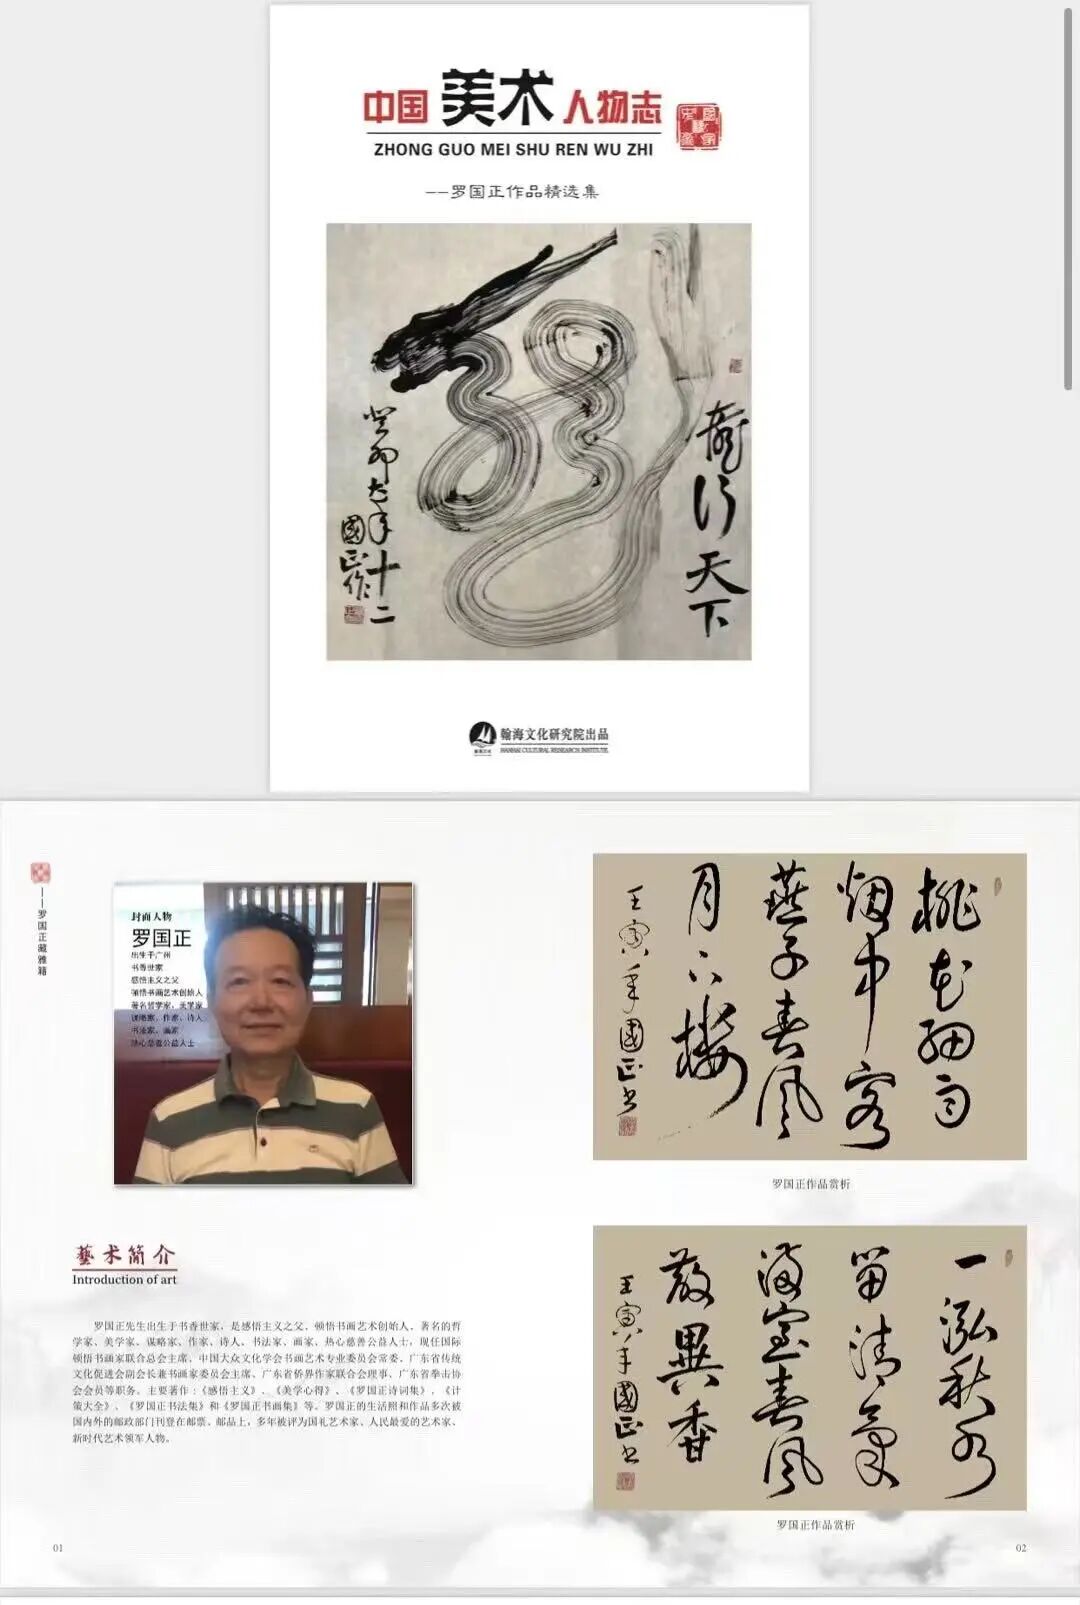 中国美术人物志
ZHONG GUO MEI SHU REN WU ZHI
——罗国正作品精选集
龍行天下
癸卯大年十二
國正作
翰海文化研究院出品
HANHAI CULTURAL RESEARCH INSTITUTE
——罗国正藏雅籍
封面人物
罗国正
出生于广州
书香世家
感悟主义之父
顿悟书画艺术创始人
著名哲学家、美学家
谋略家、作家、诗人
书法家、画家
热心慈善公益人士
藝术简介
Introduction of art
罗国正先生出生于书香世家，是感悟主义之父、顿悟书画艺术创始人、著名的哲
学家、美学家、谋略家、作家、诗人、书法家、画家、热心慈善公益人士，现任国际
顿悟书画家联合总会主席、中国大众文化学会书画艺术专业委员会常委、广东省传统
文化促进会副会长兼书画家委员会主席、广东省侨界作家联合会理事、广东省拳击协
会会员等职务。主要著作：《感悟主义》、《美学心得》、《罗国正诗词集》、《计
策大全》、《罗国正书法集》和《罗国正书画集》等。罗国正的生活照和作品多次被
国内外的邮政部门刊登在邮票、邮品上，多年被评为国礼艺术家、人民最爱的艺术家、
新时代艺术领军人物。
01
桃花細雨
烟中客
燕子春风
月下楼
壬寅年國正书
罗国正作品赏析
一泓秋水
留清气
满室春风
散異香
壬寅年國正书
罗国正作品赏析
02